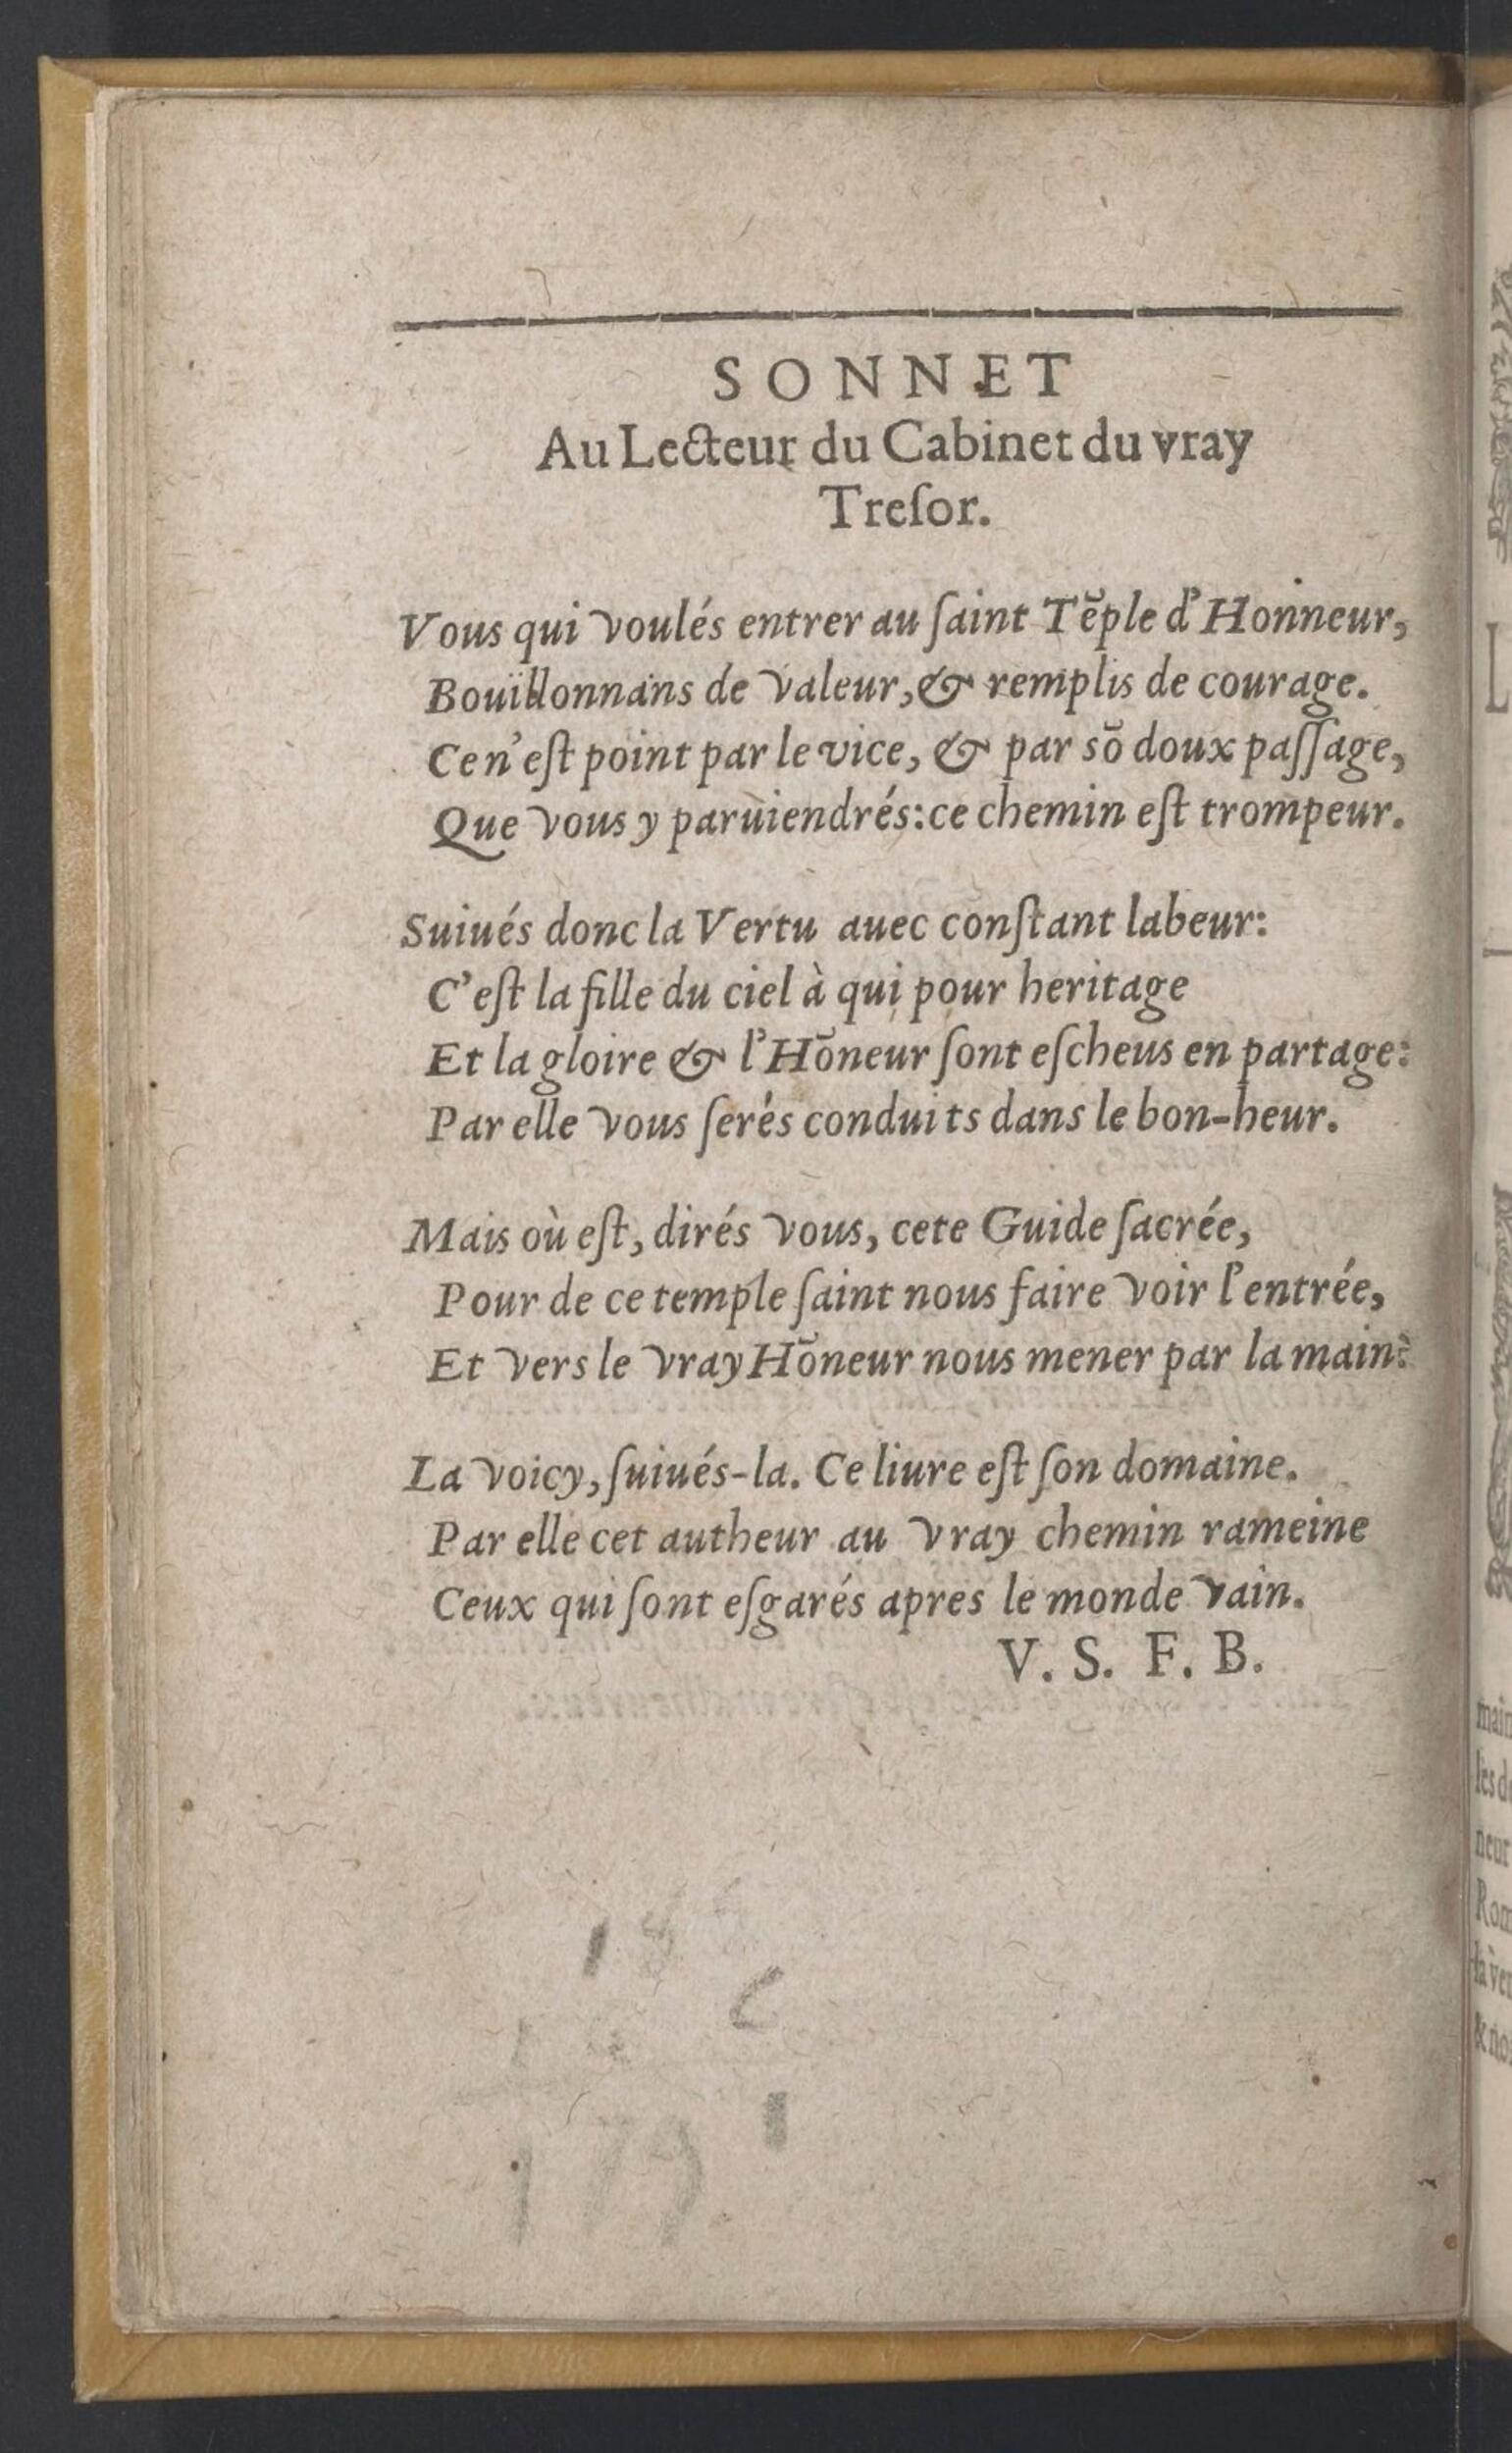 SONNET
Au Lecteur du Cabinet du vray
Treſor.
Vous qui voulés entrer au ſaint Tēple d'Honneur,
Bouïllonnans de valeur, & remplis de courage.
Ce n'eſt point par le vice, & par sō doux paſſage,
Que vous y paruiendrés: ce chemin eſt trompeur.
Suiués donc la Vertu auec conſtant labeur:
C'eſt la fille du ciel à qui pour heritage
Et la gloire & l'Hōneur ſont eſcheus en partage:
Par elle vous ſerés conduits dans le bon-heur.
Mais où eſt, dirés vous, cete Guide ſacrée,
Pour de ce temple ſaint nous faire voir l'entrée,
Et vers le vray Hōneur nous mener par la main?
La voicy, ſuiués-la. Ce liure eſt ſon domaine.
Par elle cet autheur au vray chemin rameine
Ceux qui ſont eſgarés apres le monde vain.
V. S. F. B.